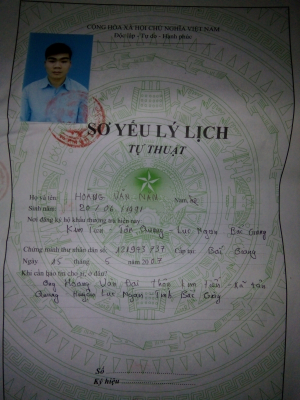 CỘNG HÒA XÃ HỘI CHỦ NGHĨA VIỆT NAM
Độc lập - Tự do - Hạnh phúc
SƠ YẾU LÝ LỊCH
TỰ THUẬT
Họ và tên HOÀNG VĂN Nam, nữ
Sinh năm: 20/06/1991
Nơi đăng ký hộ khẩu thường trú hiện nay:
Kim Tân Lục Ngạn Bắc Giang
Chứng minh thư nhân dân số: Cấp tại: Bắc Giang
Ngày 15 tháng 5 năm 2007
Khi cần báo tin cho ai, ở đâu?
Ông Hoàng Văn Đại Thôn xã Tân
Lục Ngạn Tỉnh Bắc Giang
Số
Ký hiệu